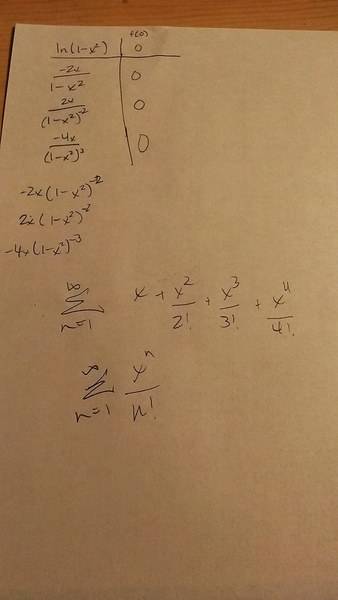 f(0)
ln(1-x²) 0
-2x/(1-x²) 0
2x/(1-x²)⁻² 0
-4x/(1-x²)³ 0
-2x(1-x²)⁻²
2x(1-x²)⁻²
-4x(1-x²)⁻³
∞ Σ n=1 x + x²/2! + x³/3! + x⁴/4!
∞ Σ n=1 xⁿ/n!